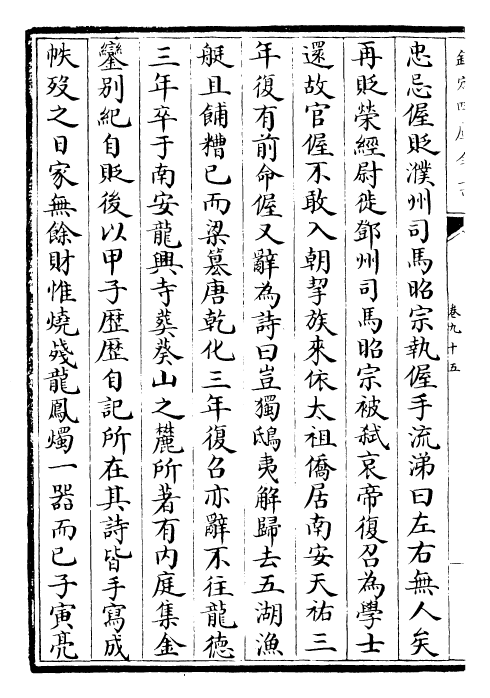 欽定四庫全書
卷九十五
忠忌偓貶濮州司馬昭宗執偓手流涕曰左右無人矣
再貶榮經尉徙鄧州司馬昭宗被弑哀帝復召為學士
還故官偓不敢入朝挈族來依太祖僑居南安天祐三
年復有前命偓又辭為詩曰豈獨鴟夷解歸去五湖漁
艇且餔糟已而梁簒唐乾化三年復召亦辭不往龍德
三年卒于南安龍興寺葬葵山之麓所著有内庭集金
鑾别紀自貶後以甲子歴歴自記所在其詩皆手寫成
帙歿之日家無餘財惟燒殘龍鳳燭一器而已子寅亮